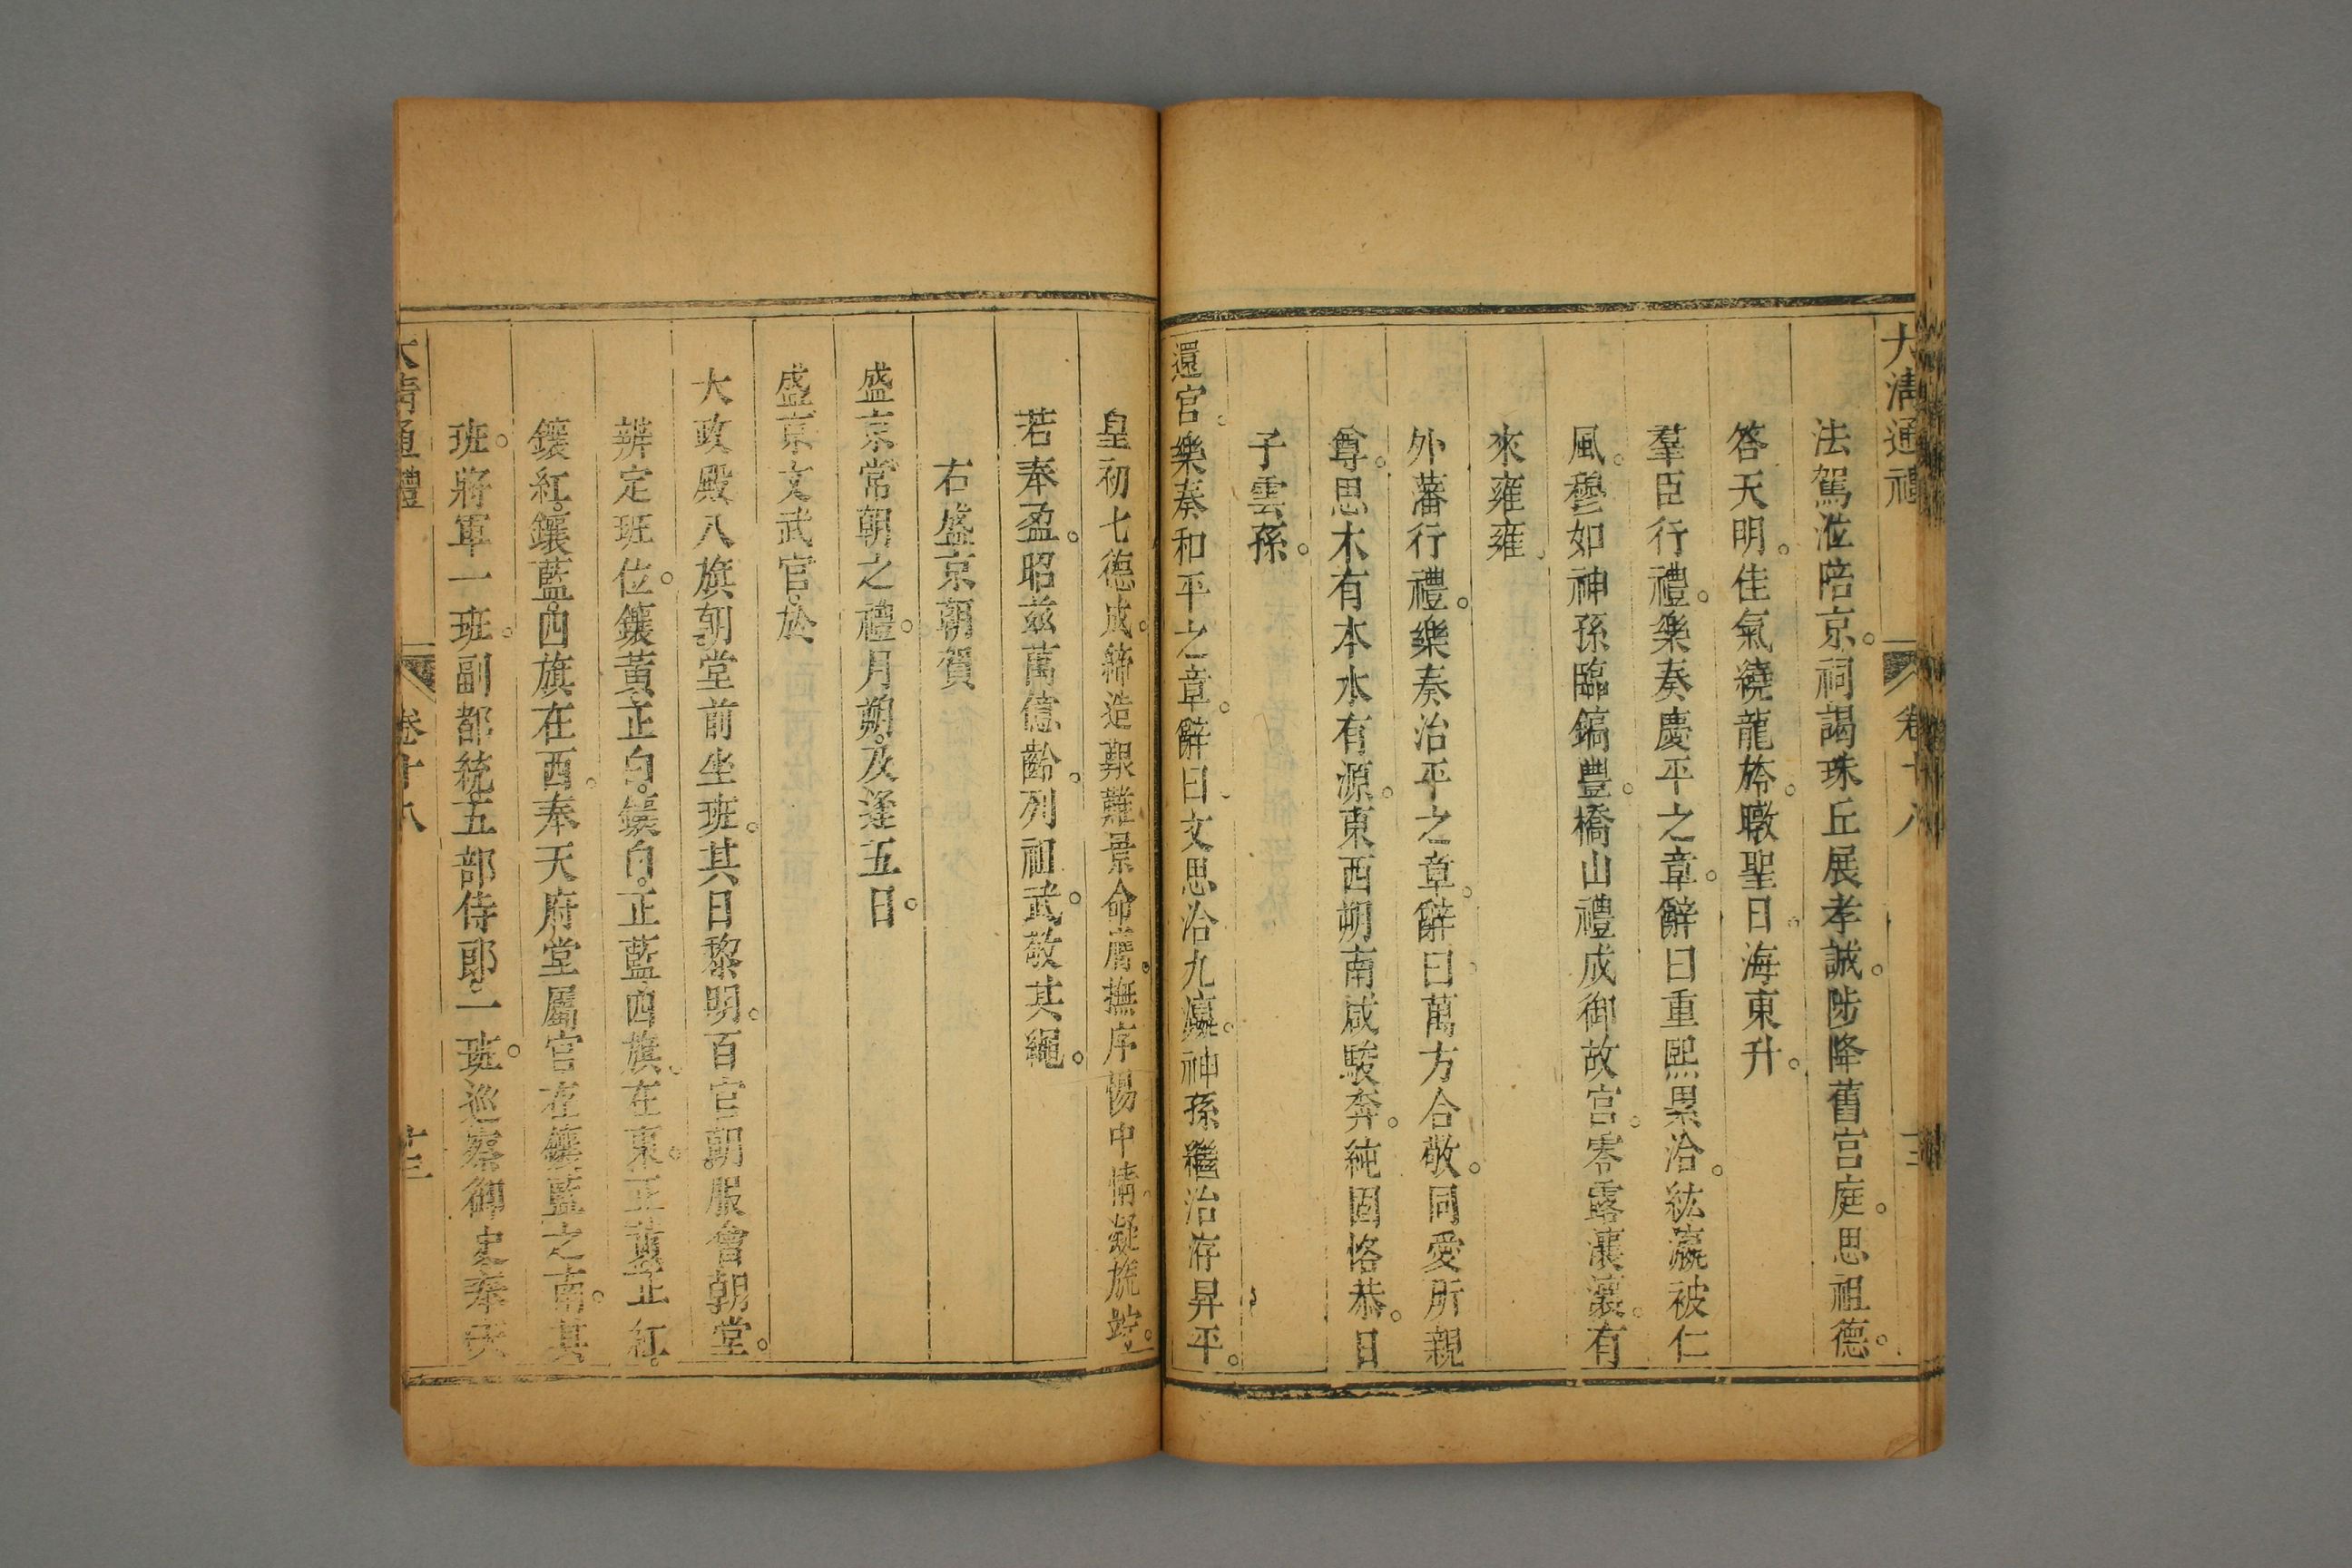 大清通禮 卷十八
法駕涖陪京。祠謁珠丘展孝誠。陟降舊宮庭。思祖德。
答天明。佳氣繞龍旂。暾聖日。海東升。
羣臣行禮。樂奏慶平之章。辭曰重熙累洽。紘瀛被仁
風。穆如神孫臨鎬豐。橋山禮成御故宮。零露瀼瀼。有
來雍雍。
外藩行禮。樂奏治平之章。辭曰萬方合敬。同愛所親
尊。思木有本水有源。東西朔南咸駿奔。純固恪恭。日
子雲孫。
還宮。樂奏和平之章。辭曰文思洽九瀛。神孫繼治洊昇平。
皇初七德成。締造艱難景命膺。撫序惕中情。凝旒竚。
若奉盈。昭兹萬億齡。列祖武。敬其繩。
右盛京朝賀
盛京常朝之禮。月朔。及逢五日。
盛京文武官。於
大政殿八旗朝堂前坐班。其日黎明。百官朝服會朝堂。
辨定班位。鑲黃。正白。鑲白。正藍。四旗。在東。正黃。正紅。
鑲紅。鑲藍。四旗在西。奉天府堂屬官在鑲藍之南。其
班。將軍一班。副都統。五部侍郎。一班。巡察御史奉天
大清通禮 卷十八 十三